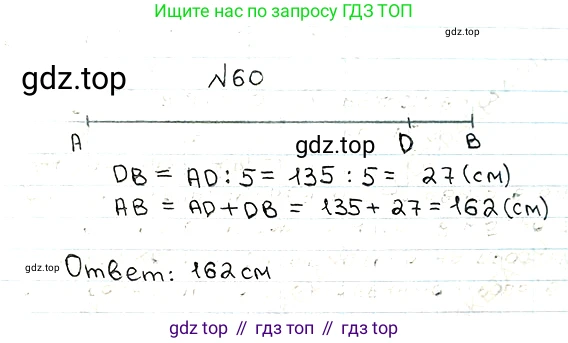 Ищите нас по запросу ГДЗ ТОП
gdz.top
gdz.top
№60
gdz.top
A D B
DB = AD : 5 = 135 : 5 = 27 (см)
AB = AD + DB = 135 + 27 = 162 (см)
gdz.top
Ответ: 162 см
gdz.top // гдз топ // гдз.top